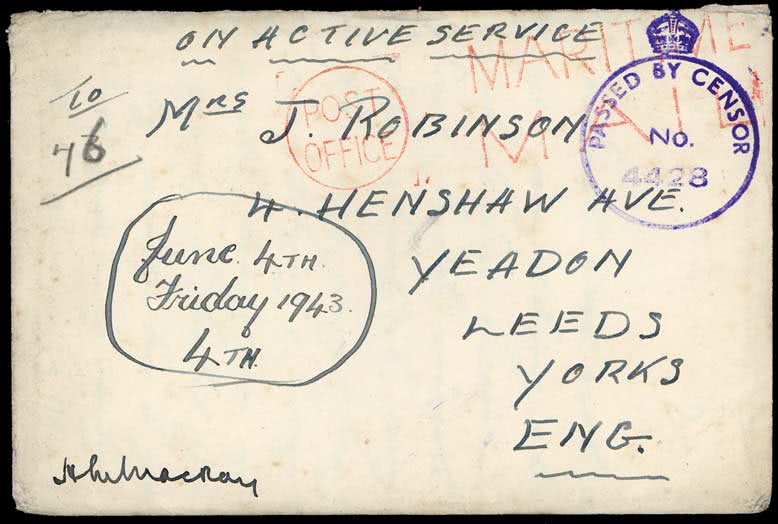 ON ACTIVE SERVICE
MARITIME
MAIL
POST
OFFICE
PASSED BY CENSOR
No.
4428
10
MRS J. ROBINSON
4. HENSHAW AVE.
YEADON
LEEDS
YORKS
ENG.
June. 4TH.
Friday 1943.
4TH.